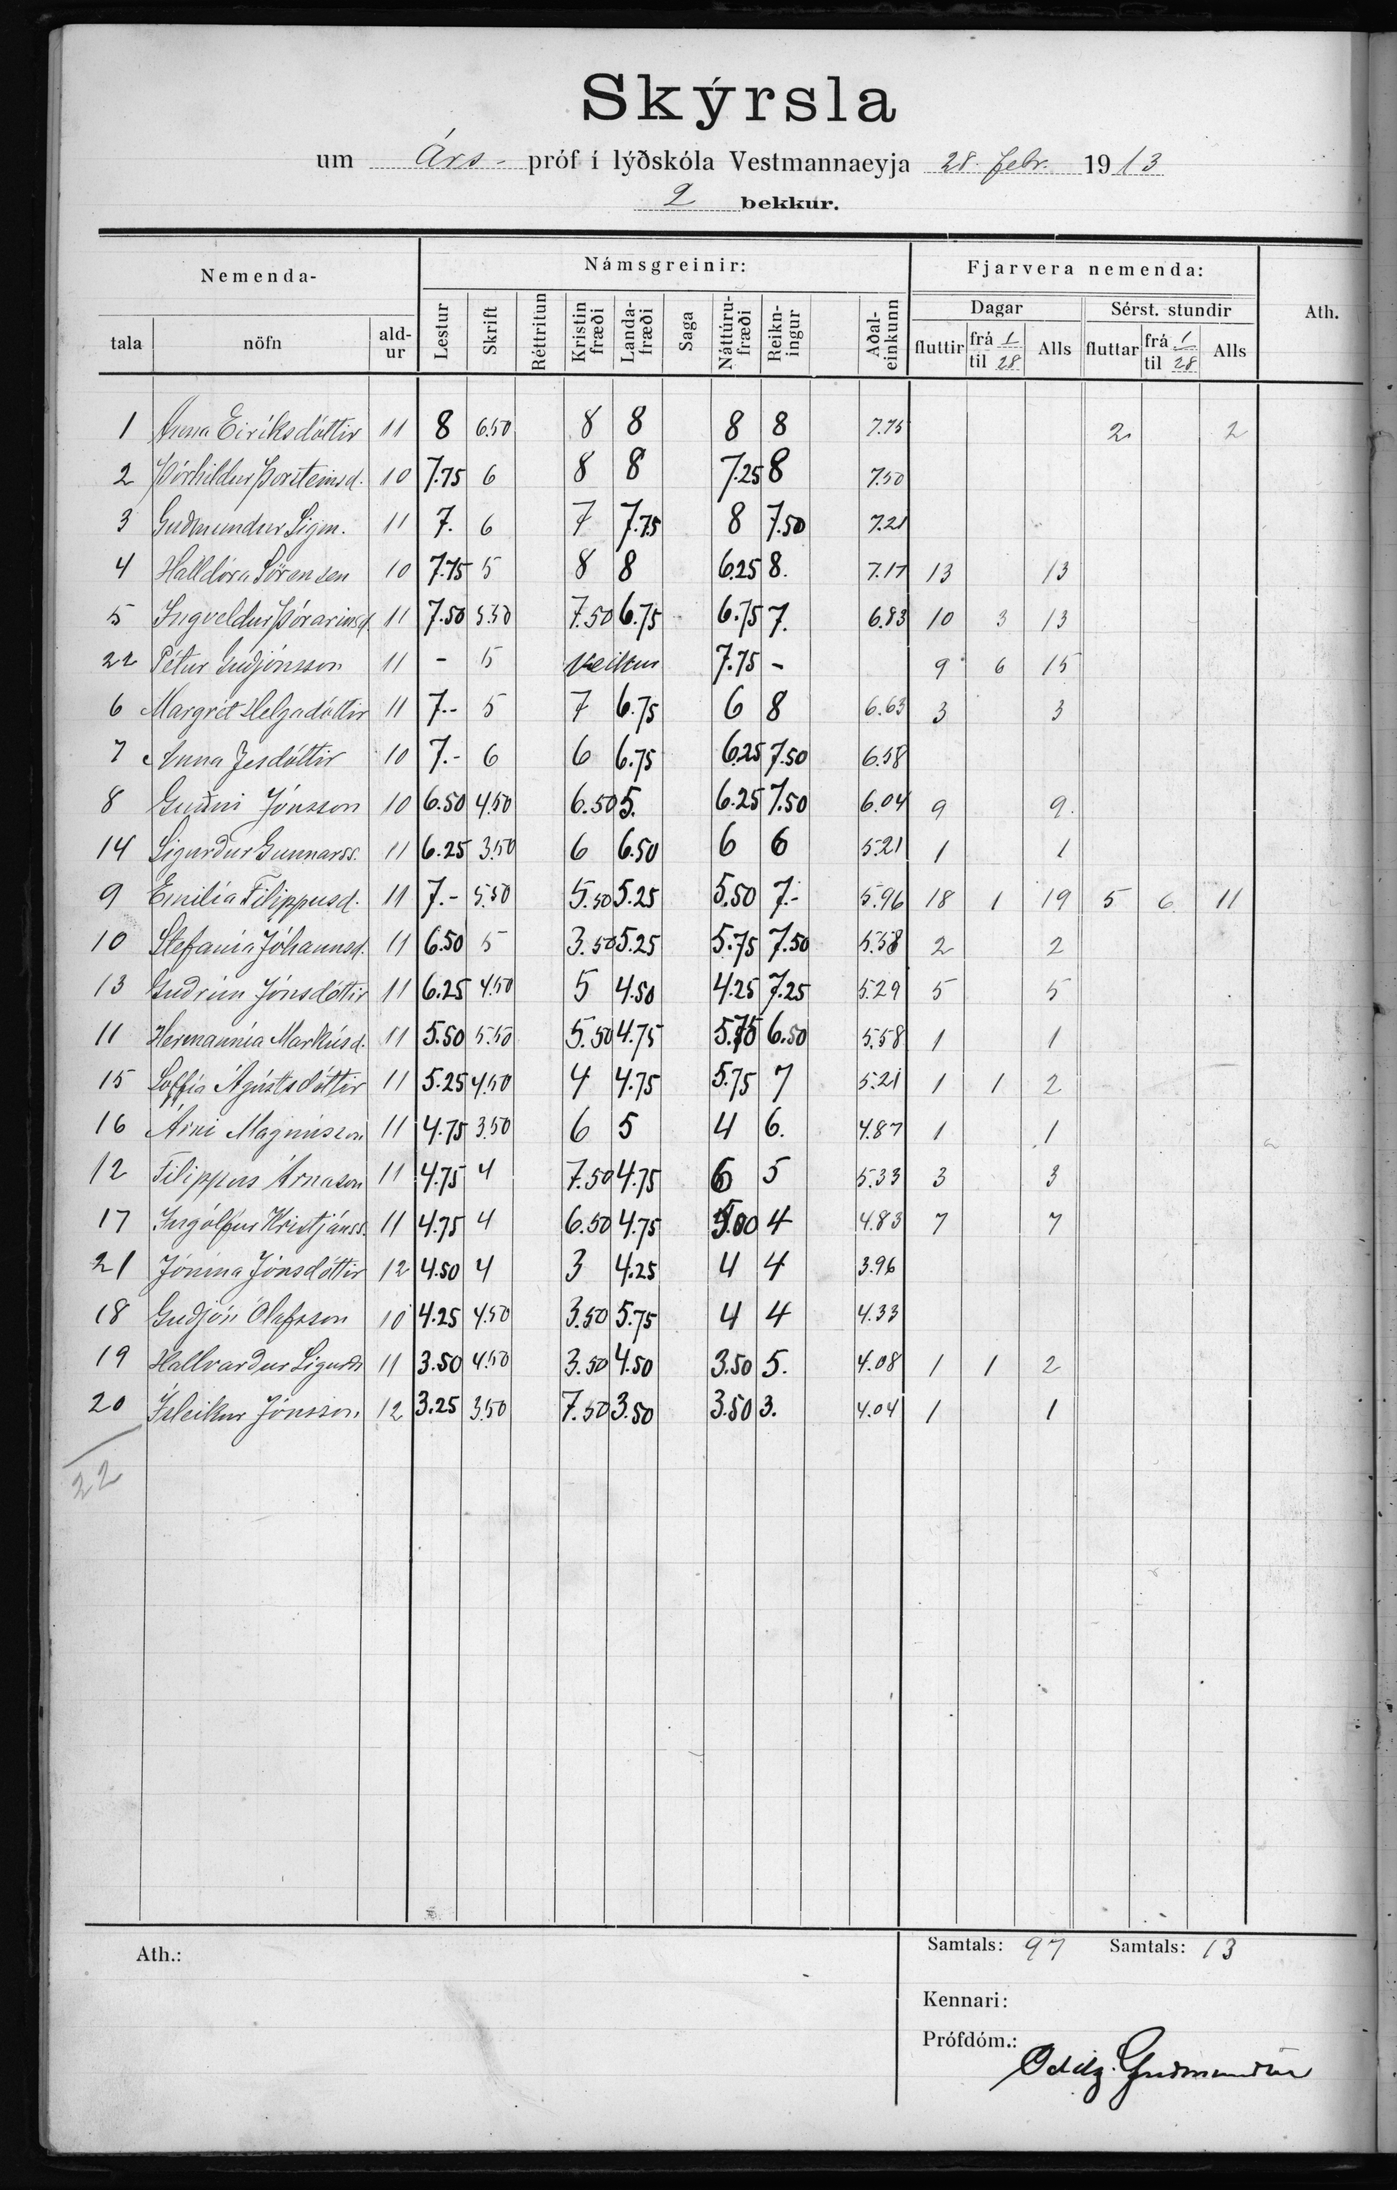 Skýrsla
um Árs- próf í lýðskóla Vestmannaeyja 28. febr. 1913
2 bekkur.
Nemenda- Námsgreinir: Fjarvera nemenda: Ath.
Dagar Sérst. stundir
tala nöfn ald-ur Lestur Skrift Réttritun Kristin fræði Landa-fræði Saga Náttúru-fræði Reikn-ingur Aðal-einkunn fluttir frá 1 til 28 Alls fluttar frá 1 til 28 Alls
1 Anna Eiríksdóttir 11 8 6.50 8 8 8 8 7.75 2 2
2 Þórhildur Þorsteinsd. 10 7.75 6 8 8 7.25 8 7.50
3 Guðmundur Sigm. 11 7. 6 7 7.75 8 7.50 7.21
4 Halldóra Sörensen 10 7.75 5 8 8 6.25 8. 7.17 13 13
5 Ingveldur Þórarinsd. 11 7.50 5.50 7.50 6.75 6.75 7. 6.83 10 3 13
22 Pétur Guðjónsson 11 - 5 Veikur 7.75 - 9 6 15
6 Margrét Helgadóttir 11 7.- 5 7 6.75 6 8 6.63 3 3
7 Anna Jesdóttir 10 7.- 6 6 6.75 6.25 7.50 6.58
8 Guðni Jónsson 10 6.50 4.50 6.50 5. 6.25 7.50 6.04 9 9.
14 Sigurður Gunnarss. 11 6.25 3.50 6 6.50 6 6 5.21 1 1
9 Emilía Filippusd. 11 7.- 5.50 5.50 5.25 5.50 7.- 5.96 18 1 19 5 6 11
10 Stefanía Jóhannsd. 11 6.50 5 3.50 5.25 5.75 7.50 5.58 2 2
13 Guðrún Jónsdóttir 11 6.25 4.50 5 4.50 4.25 7.25 5.29 5 5
11 Hermannía Markúsd. 11 5.50 5.50 5.50 4.75 5.75 6.50 5.58 1 1
15 Soffía Ágústsdóttir 11 5.25 4.50 4 4.75 5.75 7 5.21 1 1 2
16 Árni Magnússon 11 4.75 3.50 6 5 4 6. 4.87 1 1
12 Filippus Árnason 11 4.75 4 7.50 4.75 6 5 5.33 3 3
17 Ingólfur Kristjánss. 11 4.75 4 6.50 4.75 5.00 4 4.83 7 7
21 Jónína Jónsdóttir 12 4.50 4 3 4.25 4 4 3.96
18 Guðjón Ólafsson 10 4.25 4.50 3.50 5.75 4 4 4.33
19 Hallvarður Sigurðs 11 3.50 4.50 3.50 4.50 3.50 5. 4.08 1 1 2
20 Ísleikur Jónsson 12 3.25 3.50 7.50 3.50 3.50 3. 4.04 1 1
22
Ath.: Samtals: 97 Samtals: 13
Kennari:
Prófdóm.:
Oddg. Guðmundsen